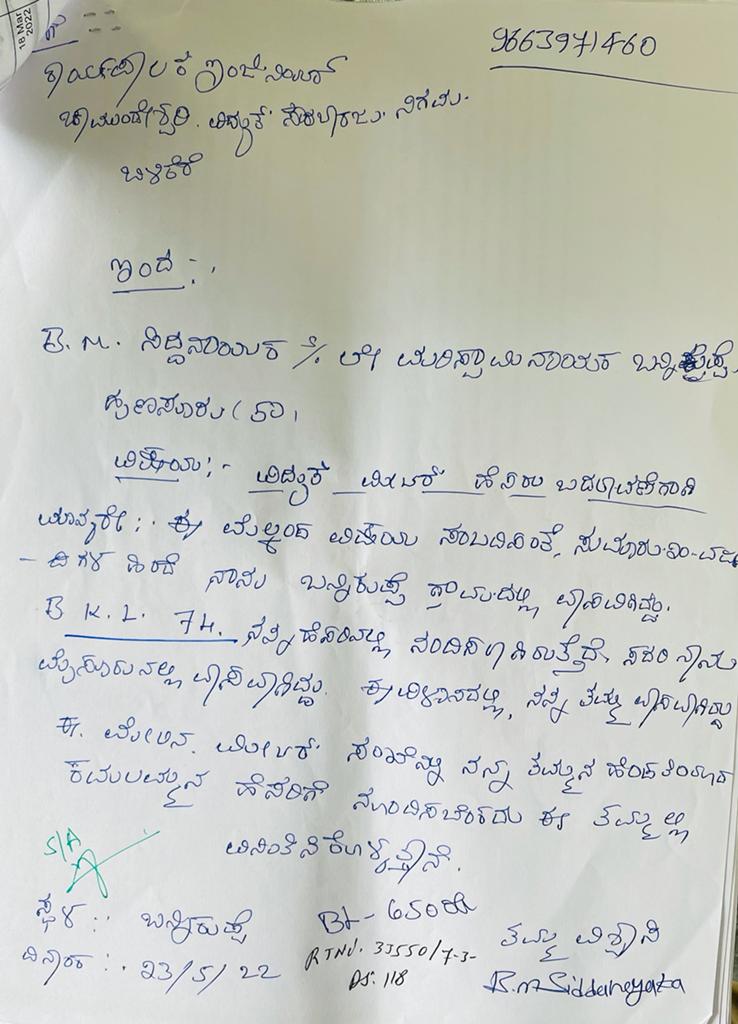 18 Mar 2022
9663971460
ಕಾರ್ಯಪಾಲಕ ಇಂಜಿನಿಯರ್
ಚಾಮುಂಡೇಶ್ವರಿ. ವಿದ್ಯುತ್ ಸರಬರಾಜು ನಿಗಮ.
ಬಿಳಿಕೆರೆ
ಇಂದ :-
B. M. ಸಿದ್ದನಾಯಕ S/o ಲೇ ಮರಿಸ್ವಾಮಿನಾಯಕ ಬನ್ನಿಕುಪ್ಪೆ
ಹುಣಸೂರು (ತಾ)
ವಿಷಯ :- ವಿದ್ಯುತ್ ಮೀಟರ್ ಹೆಸರು ಬದಲಾವಣೆಗಾಗಿ
ಮಾನ್ಯರೇ :- ಈ ಮೇಲ್ಕಂಡ ವಿಷಯ ಸಂಬಂದಿಸಿದಂತೆ, ಸುಮಾರು
ಹಿಂದೆ ನಾನು ಬನ್ನಿಕುಪ್ಪೆ ಗ್ರಾಮದಲ್ಲಿ ವಾಸವಿದ್ದು.
B K. L. 74. ನನ್ನ ಹೆಸರಿನಲ್ಲಿ ನಾನು
ಮೈಸೂರುನಲ್ಲಿ ವಾಸವಾಗಿದ್ದು. ಈ ವಿಳಾಸದಲ್ಲಿ, ನನ್ನ ತಮ್ಮ ವಾಸವಾಗಿದ್ದು
ಈ. ಮೇಲಿನ. ಮೀಟರ್ ಸಂಖ್ಯೆಯನ್ನು ನನ್ನ ತಮ್ಮನ ಹೆಂಡತಿಯಾದ
ಕಮಲಮ್ಮನ ಹೆಸರಿಗೆ ಈ ತಮ್ಮಲ್ಲಿ
ವಿನಂತಿಸಿಕೊಳ್ಳುತ್ತೇನೆ.
S/A
ಸ್ಥಳ :- ಬನ್ನಿಕುಪ್ಪೆ
RTNO. 33550/7-3-
ತಮ್ಮ ವಿಶ್ವಾಸಿ
ದಿನಾಂಕ :- 23/5/22
DS: 118
B.M Siddanayaka